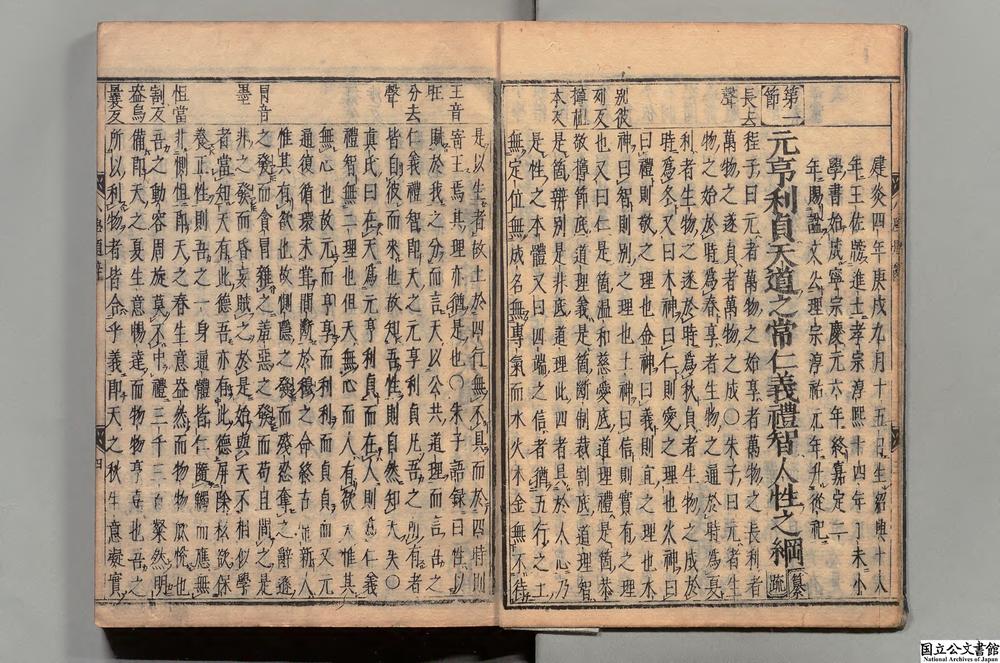 建炎四年庚戌九月十五日生紹興十八
年王佐牓進士孝宗淳熙十四年丁未小
學書始成寧宗慶元六年終嘉定二
年賜謚文公理宗淳祐元年升從祀
第一節
元亨利貞天道之常仁義禮智人性之綱
纂疏
長去聲
程子曰元者萬物之始亨者萬物之長利者
萬物之遂貞者萬物之成〇朱子曰元者生
物之始於時爲春亨者生物之通於時爲夏
利者生物之遂於時爲秋貞者生物之成於
時爲冬又曰木神曰仁則愛之理也火神
曰禮則敬之理也金神曰義則宜之理也水
神曰智則別之理也土神曰信則實有之理
也又曰仁是箇溫和慈愛底道理禮是箇恭
敬撙節底道理義是箇斷制裁割底道理智
是箇辨別是非底道理此四者具於人心乃
是性之本體又曰四端之信者猶五行之土
無定位無成名無專氣而水火木金無不待
別彼列反
撙祖本反
是以生者故土於四行無不具而於四時則
寄王焉其理亦猶是也〇朱子語錄曰性以
賦於我之分而言天以公共道理而言吾之
仁義禮智即天之元亨利貞凡吾之所有者
皆自彼而來也故知吾性則自然知天矣〇
真氏曰在天爲元亨利貞而在人則爲仁義
禮智無二理也但天無心而人有欲天惟其
無心也故元而亨亨而利利而貞貞而又元
通復循環未嘗間斷於穆之命終古常新人
惟其有欲也故惻隱之發而殘忍奪之辭遜
之發而貪冒雜之羞惡之發而苟且間之是
非之發而昏妄賊之於是始與天不相似學
者當知天有此德吾亦有此德屏除私欲保
養正性則吾之一身通體皆仁隨觸而應無
非惻怛即天之春生意盎然而物物欣悅也
吾之動容周旋莫不中禮三千三百粲然明
備即天之夏生意暢達而物物亨嘉也吾之
所以利物者皆合乎義即天之秋生意凝實
王音旺
分去聲
冒音墨
怛當割反
盎烏曩反
四
国立公文書館
National Archives of Japan